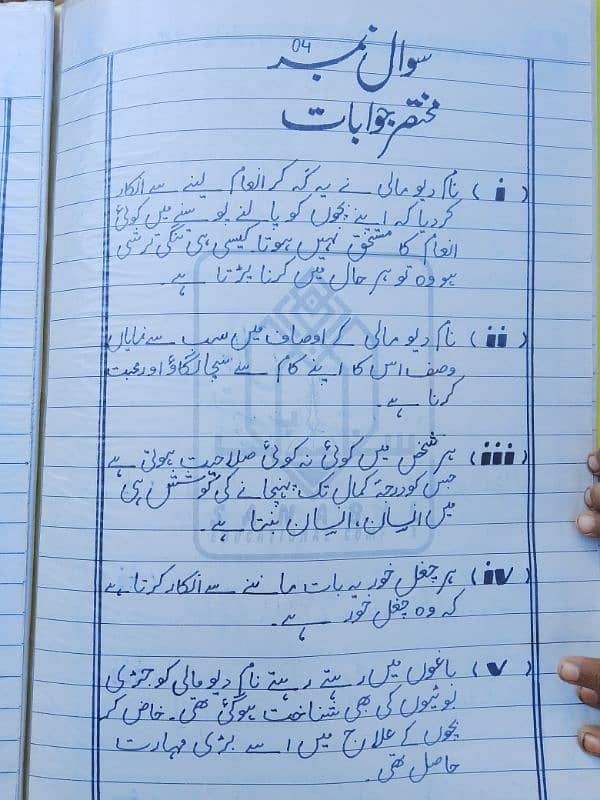 سوال نمبر 04
مختصر جوابات
(i) نام دیو مالی نے یہ کہہ کر انعام لینے سے انکار
کر دیا کہ اپنے بچوں کو پالنے پوسنے میں کوئی
انعام کا مستحق نہیں ہوتا۔ کیسی ہی تنگی ترشی
ہو وہ تو ہر حال میں کرنا پڑتا ہے۔
(ii) نام دیو مالی کے اوصاف میں سب سے نمایاں
وصف اس کا اپنے کام سے سچا لگاؤ اور محبت
کرنا ہے۔
(iii) ہر شخص میں کوئی نہ کوئی صلاحیت ہوتی ہے
جس کو درجۂ کمال تک پہنچانے کی کوشش ہی
میں انسان، انسان بنتا ہے۔
(iv) ہر چغل خور یہ بات ماننے سے انکار کرتا ہے
کہ وہ چغل خور ہے۔
(v) باغوں میں رہتے رہتے نام دیو مالی کو جڑی
بوٹیوں کی بھی شناخت ہوگئی تھی۔ خاص کر
بچوں کے علاج میں اسے بڑی مہارت
حاصل تھی۔